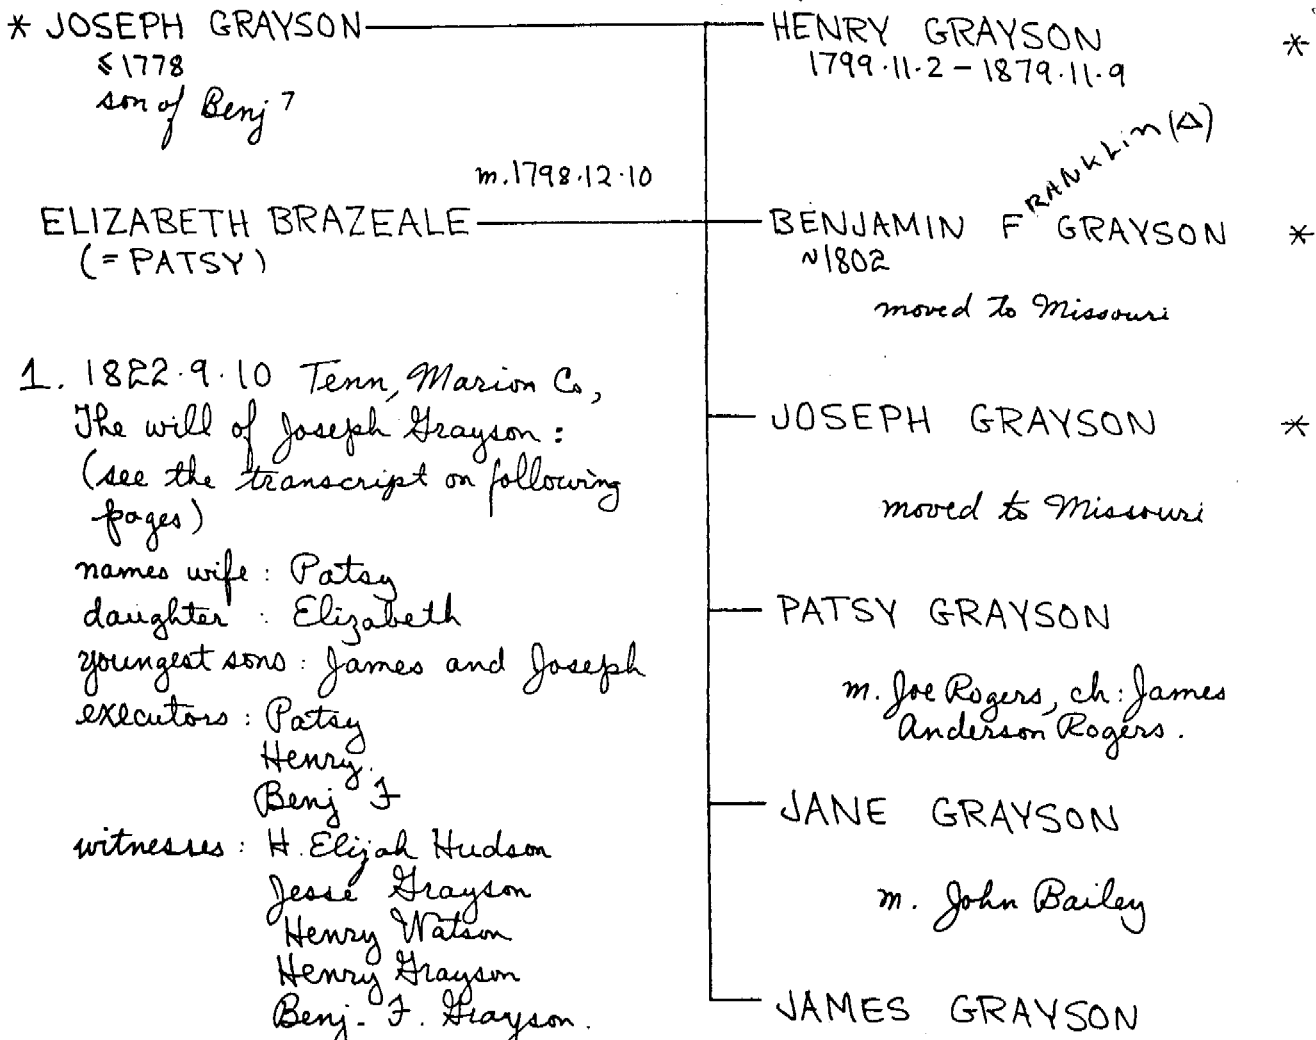 * JOSEPH GRAYSON
≤1778
son of Benj 7
m. 1798.12.10
ELIZABETH BRAZEALE
(= PATSY)
1. 1822.9.10 Tenn, Marion Co,
The will of Joseph Grayson:
(see the transcript on following
pages)
names wife: Patsy
daughter: Elizabeth
youngest sons: James and Joseph
executors: Patsy
Henry.
Benj F
witnesses: H. Elijah Hudson
Jesse Grayson
Henry Watson
Henry Grayson
Benj. F. Grayson.
HENRY GRAYSON *
1799.11.2 - 1879.11.9
BENJAMIN FRANKLIN (Δ) GRAYSON *
~1802
moved to Missouri
JOSEPH GRAYSON *
moved to Missouri
PATSY GRAYSON
m. Joe Rogers, ch: James
Anderson Rogers.
JANE GRAYSON
m. John Bailey
JAMES GRAYSON